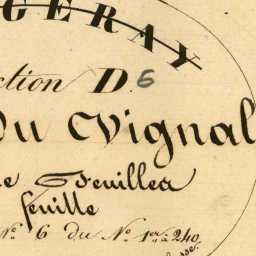 GERAY
ction D. 6
Du Vignal
e Feuilles
feuille
N° 6 du N° 1er à 240